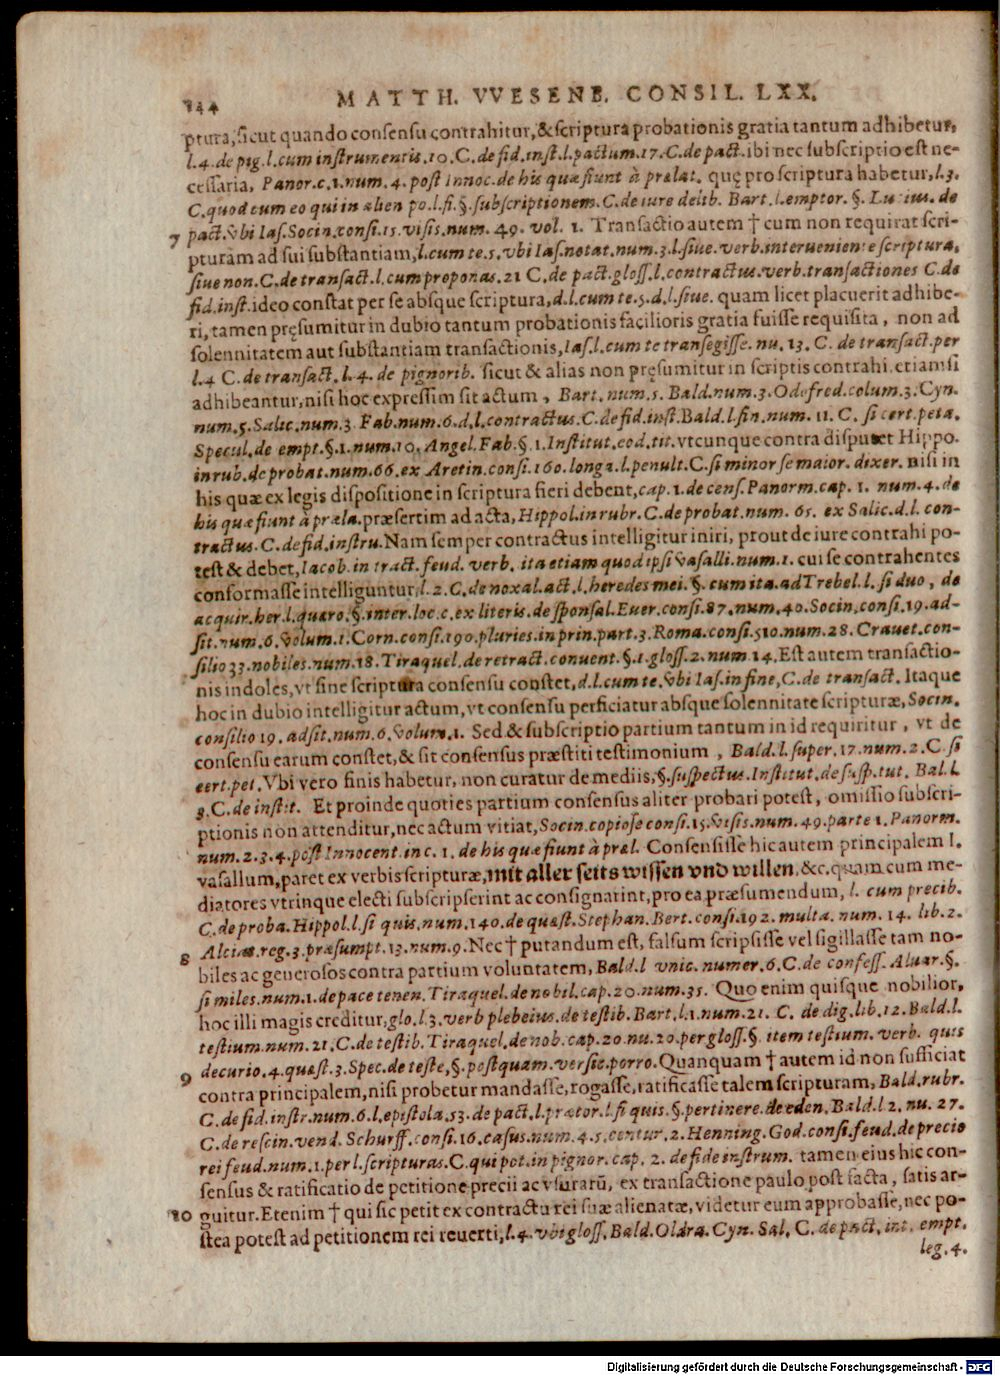 144 MATTH. VVESENB. CONSIL. LXX.
ptura, sicut quando consensu contrahitur, & scriptura probationis gratia tantum adhibetur,
l. 4. de pig. l. cum instrumentis. 10. C. de fid. inst. l. pactum. 17. C. de pact. ibi nec subscriptio est ne-
cessaria, Panor. c. 1. num. 4. post Innoc. de his quæ fiunt à prælat. quę pro scriptura habetur, l. 3.
C. quod cum eo qui in alien po. l. fi. §. subscriptionem. C. de iure delib. Bart. l. emptor. §. Lucius. de
7 pact. & vbi Ias. Socin. consi. 15. visis. num. 49. vol. 1. Transactio autem † cum non requirat scri-
pturam ad sui substantiam, l. cum te. 5. vbi Ias. notat. num. 3. l. siue. verb. interueniente scriptura,
siue non. C. de transact. l. cum proponas. 21 C. de pact. gloss. l. contractus. verb. transactiones C. de
fid. inst. ideo constat per se absque scriptura, d. l. cum te. 5. d. l. siue. quam licet placuerit adhibe-
ri, tamen pręsumitur in dubio tantum probationis facilioris gratia fuisse requisita, non ad
solennitatem aut substantiam transactionis, Ias. l. cum te transegisse. nu. 13. C. de transact. per
l. 4 C. de transact. l. 4. de pignorib. sicut & alias non pręsumitur in scriptis contrahi, etiamsi
adhibeantur, nisi hoc expressim sit actum, Bart. num. 5. Bald. num. 3. Odofred. colum. 3. Cyn.
num. 5. Salic. num. 3 Fab. num. 6. d. l. contractus. C. de fid. inst. Bald. l. fin. num. 11. C. si cert. peta.
Specul. de empt. §. 1. num. 10. Angel. Fab. §. 1. Institut. eod. tit. vtcunque contra disputet Hippo.
in rub. de probat. num. 66. ex Aretin. consi. 160. longa. l. penult. C. si minor se maior. dixer. nisi in
his quæ ex legis dispositione in scriptura fieri debent, cap. 1. de cens. Panorm. cap. 1. num. 4. de
his quæ fiunt à præla. præsertim ad acta, Hippol. in rubr. C. de probat. num. 65. ex Salic. d. l. con-
tractus. C. de fid. instru. Nam semper contractus intelligitur iniri, prout de iure contrahi po-
test & debet, Iacob. in tract. feud. verb. ita etiam quod ipsi & vasalli. num. 1. cui se contrahentes
conformasse intelliguntur, l. 2. C. de noxal. act. l. heredes mei. §. cum ita. ad Trebel. l. si duo, de
acquir. her. l. quæro. §. inter. loc. c. ex literis. de sponsal. Euer. consi. 87. num. 40. Socin. consi. 19. ad-
sit. num. 6. Volum. 1. Corn. consi. 190. pluries. in prin. part. 3. Roma. consi. 510. num. 28. Crauet. con-
silio 33. nobiles. num. 18. Tiraquel. de retract. conuent. §. 1. gloss. 2. num. 14. Est autem transactio-
nis indoles, vt sine scriptura consensu constet, d. l. cum te. & vbi Ias. in fine, C. de transact. Itaque
hoc in dubio intelligitur actum, vt consensu perficiatur absque solennitate scripturæ, Socin.
consilio 19. adsit. num. 6. Volum. 1. Sed & subscriptio partium tantum in id requiritur, vt de
consensu earum constet, & sit consensus præstiti testimonium, Bald. l. super. 17. num. 2. C. si
cert. pet. Vbi vero finis habetur, non curatur de mediis, §. suspectus. Institut. de susp. tut. Bal. l.
3. C. de instit. Et proinde quoties partium consensus aliter probari potest, omissio subscri-
ptionis non attenditur, nec actum vitiat, Socin. copiose consi. 15. Visis. num. 49. parte 1. Panorm.
num. 2. 3. 4. post Innocent. in c. 1. de his quæ fiunt à præl. Consensisse hic autem principalem I.
vasallum, paret ex verbis scripturæ, mit aller seits wissen vnd willen. &c. quam cum me-
diatores vtrinque electi subscripserint ac consignarint, pro ea præsumendum, l. cum precib.
C. de proba. Hippol. l. si quis. num. 140. de quæst. Stephan. Bert. consi. 192. multa. num. 14. lib. 2.
8 Alciat. reg. 3. præsumpt. 13. num. 9. Nec † putandum est, falsum scripsisse vel sigillasse tam no-
biles ac generosos contra partium voluntatem, Bald. l vnic. numer. 6. C. de confess. Aluar. §.
si miles. num. 1. de pace tenen. Tiraquel. de nobil. cap. 20. num. 35. Quo enim quisque nobilior,
hoc illi magis creditur, glo. l. 3. verb plebeius. de testib. Bart. l. 1. num. 21. C. de dig. lib. 12. Bald. l.
testium. num. 21. C. de testib. Tiraquel. de nob. cap. 20. nu. 20. per gloss. §. item testium. verb. quis
9 decurio. 4. quæst. 3. Spec. de teste, §. postquam. versic. porro. Quanquam † autem id non sufficiat
contra principalem, nisi probetur mandasse, rogasse, ratificasse talem scripturam, Bald. rubr.
C. de fid. instr. num. 6. l. epistola. 53. de pact. l. prætor. l. si quis. §. pertinere. de eden. Bald. l 2. nu. 27.
C. de rescin. vend. Schurff. consi. 16. casus. num. 4. 5. centur. 2. Henning. God. consi. feud. de precio
rei feud. num. 1. per l. scripturas. C. qui pot. in pignor. cap. 2. de fide instrum. tamen eius hic con-
sensus & ratificatio de petitione precii ac vsurarū, ex transactione paulo post facta, satis ar-
10 guitur. Etenim † qui sic petit ex contractu rei suæ alienatæ, videtur eum approbasse, nec po-
stea potest ad petitionem rei reuerti, l. 4. vbi gloss. Bald. Oldra. Cyn. Sal. C. de pact. int. empt.
leg. 4.
Digitalisierung gefördert durch die Deutsche Forschungsgemeinschaft - DFG